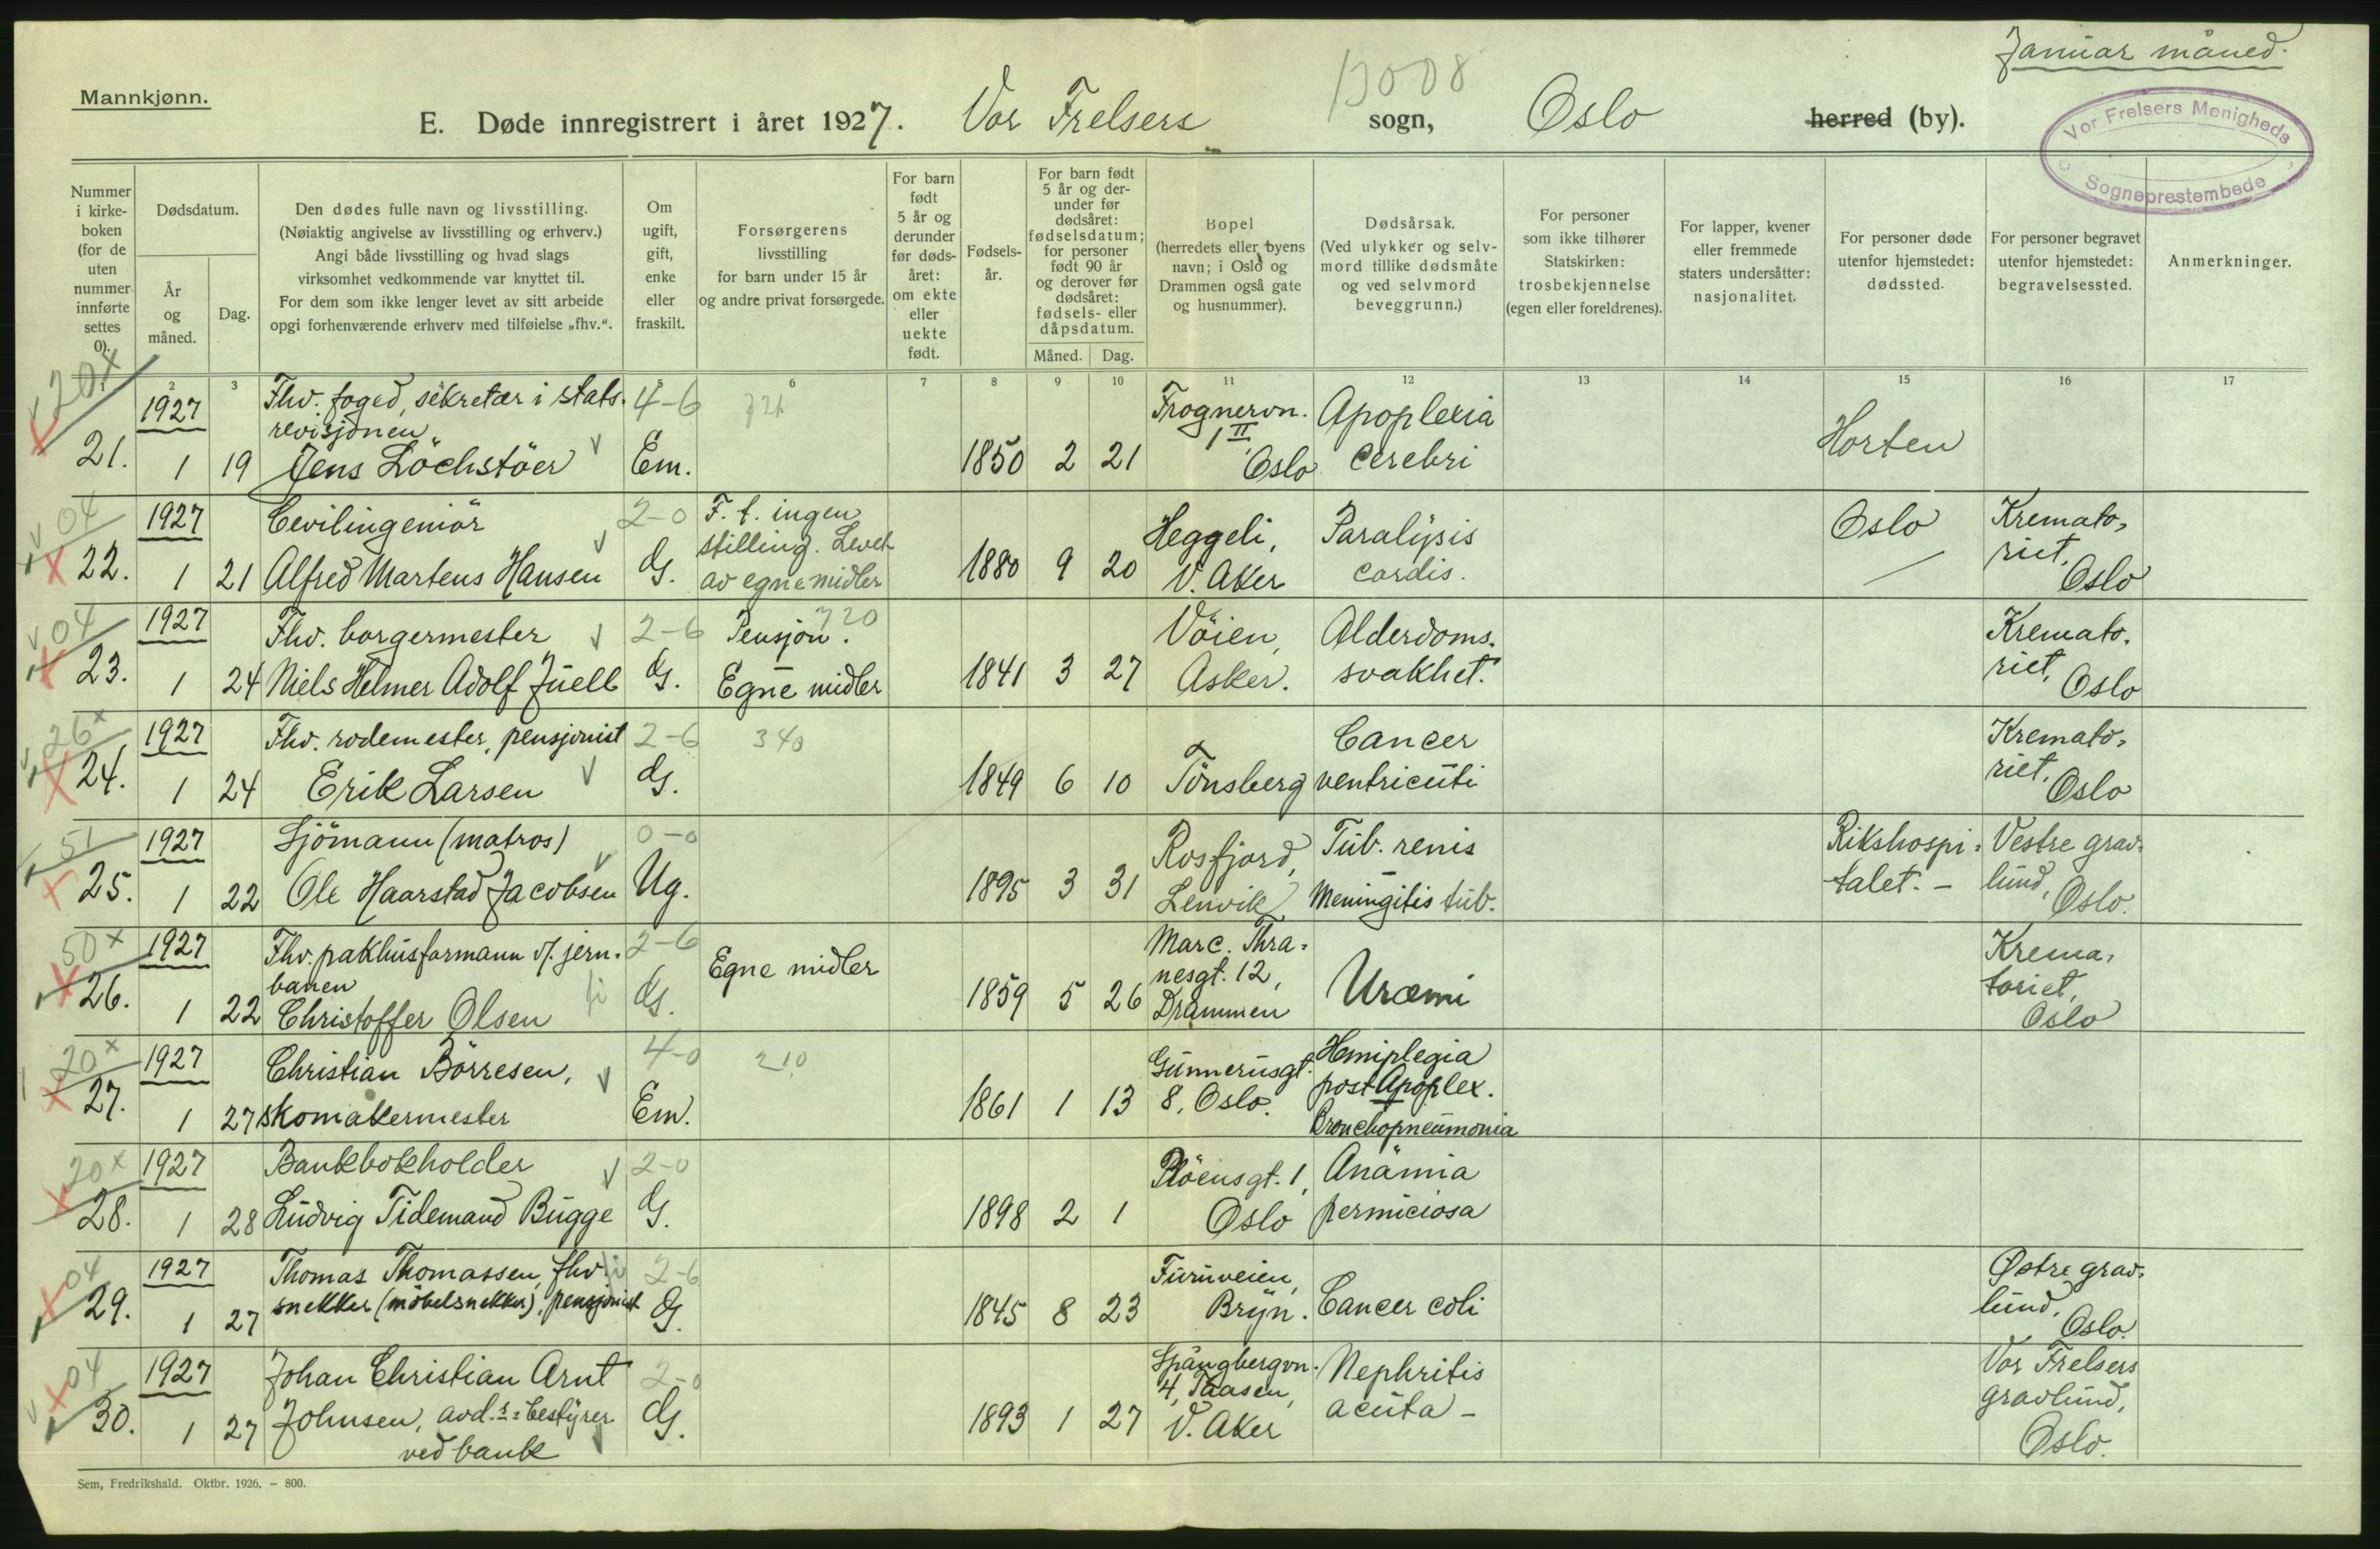 Januar måned.
Mannkjønn.
13008
E. Døde innregistrert i året 1927. Vor Frelsers sogn, Oslo herred (by).
Vor Frelsers Menigheds
Sogneprestembede
Nummer i kirke-boken (for de uten nummer innførte settes 0).
Dødsdatum.
År og måned.
Dag.
Den dødes fulle navn og livsstilling.
(Nøiaktig angivelse av livsstilling og erhverv.)
Angi både livsstilling og hvad slags
virksomhet vedkommende var knyttet til.
For dem som ikke lenger levet av sitt arbeide
opgi forhenværende erhverv med tilføielse „fhv.“.
Om ugift, gift, enke eller fraskilt.
Forsørgerens
livsstilling
for barn under 15 år
og andre privat forsørgede.
For barn født 5 år og derunder før døds-året: om ekte eller uekte født.
Fødsels-år.
For barn født 5 år og der-under før dødsåret: fødselsdatum; for personer født 90 år og derover før dødsåret: fødsels- eller dåpsdatum.
Måned. Dag.
Bopel
(herredets eller byens
navn; i Oslo og
Drammen også gate
og husnummer).
Dødsårsak.
(Ved ulykker og selv-
mord tillike dødsmåte
og ved selvmord
beveggrunn.)
For personer
som ikke tilhører
Statskirken:
trosbekjennelse
(egen eller foreldrenes).
For lapper, kvener
eller fremmede
staters undersåtter:
nasjonalitet.
For personer døde
utenfor hjemstedet:
dødssted.
For personer begravet
utenfor hjemstedet:
begravelsessted.
Anmerkninger.
1 2 3 6 7 8 9 10 11 12 13 14 15 16 17
20x
1927 Fhv. foged, sekretær i stats- 4-6 Frognervn. Apoplexia
revisjonen 1 II Horten
21. 1 19 Jens Löchstöer Em. 1850 2 21 Oslo cerebri
04
1927 Civilingeniör 2-0 F. t. ingen Heggeli, Paralysis Oslo Kremato-
stilling. Levet riet,
22. 1 21 Alfred Martens Hansen G. av egne midler 1880 9 20 V. Aker cordis. Oslo
04 720
1927 Fhv. borgermester 2-6 Pensjon. Vöien, Alderdoms- Kremato-
riet,
23. 1 24 Niels Helmer Adolf Juell G. Egne midler 1841 3 27 Asker. svakhet. Oslo
26x
1927 Fhv. rodemester, pensjonist 2-6 340 Cancer Kremato-
riet,
24. 1 24 Erik Larsen G. 1849 6 10 Tönsberg ventriculi Oslo
51
1927 Sjömann (matros) 0-0 Rosfjord, Tub. renis Rikshospi- Vestre grav-
25. 1 22 Ole Haarstad Jacobsen Ug. 1895 3 31 Lenvik Meningitis tub. talet. - lund, Oslo.
50x
1927 Fhv. pakhusformann v/. jern- 2-6 Marc. Thra- Krema-
banen Egne midler nesgt. 12, toriet,
26. 1 22 Christoffer Olsen G. 1859 5 26 Drammen Uræmi Oslo
20x
1927 Christian Börresen, 4-0 210 Gunnerusgt. Hemiplegia
post Apoplex.
27. 1 27 skomakermester Em. 1861 1 13 8, Oslo. Bronchopneumonia
20x
1927 Bankbokholder 2-0 Plöensgt. 1, Anämia
28. 1 28 Ludvig Tidemand Bugge G. 1898 2 1 Oslo perniciosa
04
1927 Thomas Thomassen, fhv. 2-6 Furuveien, Østre grav-
lund,
29. 1 27 snekker (möbelsnekker), pensjonist G. 1845 8 23 Bryn. Cancer coli Oslo.
04
1927 Johan Christian Arnt 2-0 Spångbergvn. Nephritis Vor Frelsers
4, Taasen, gravlund,
30. 1 27 Johnsen, avd.s-bestyrer G. 1893 1 27 V. Aker acuta - Oslo.
ved bank
Sem, Fredrikshald. Oktbr. 1926. – 800.